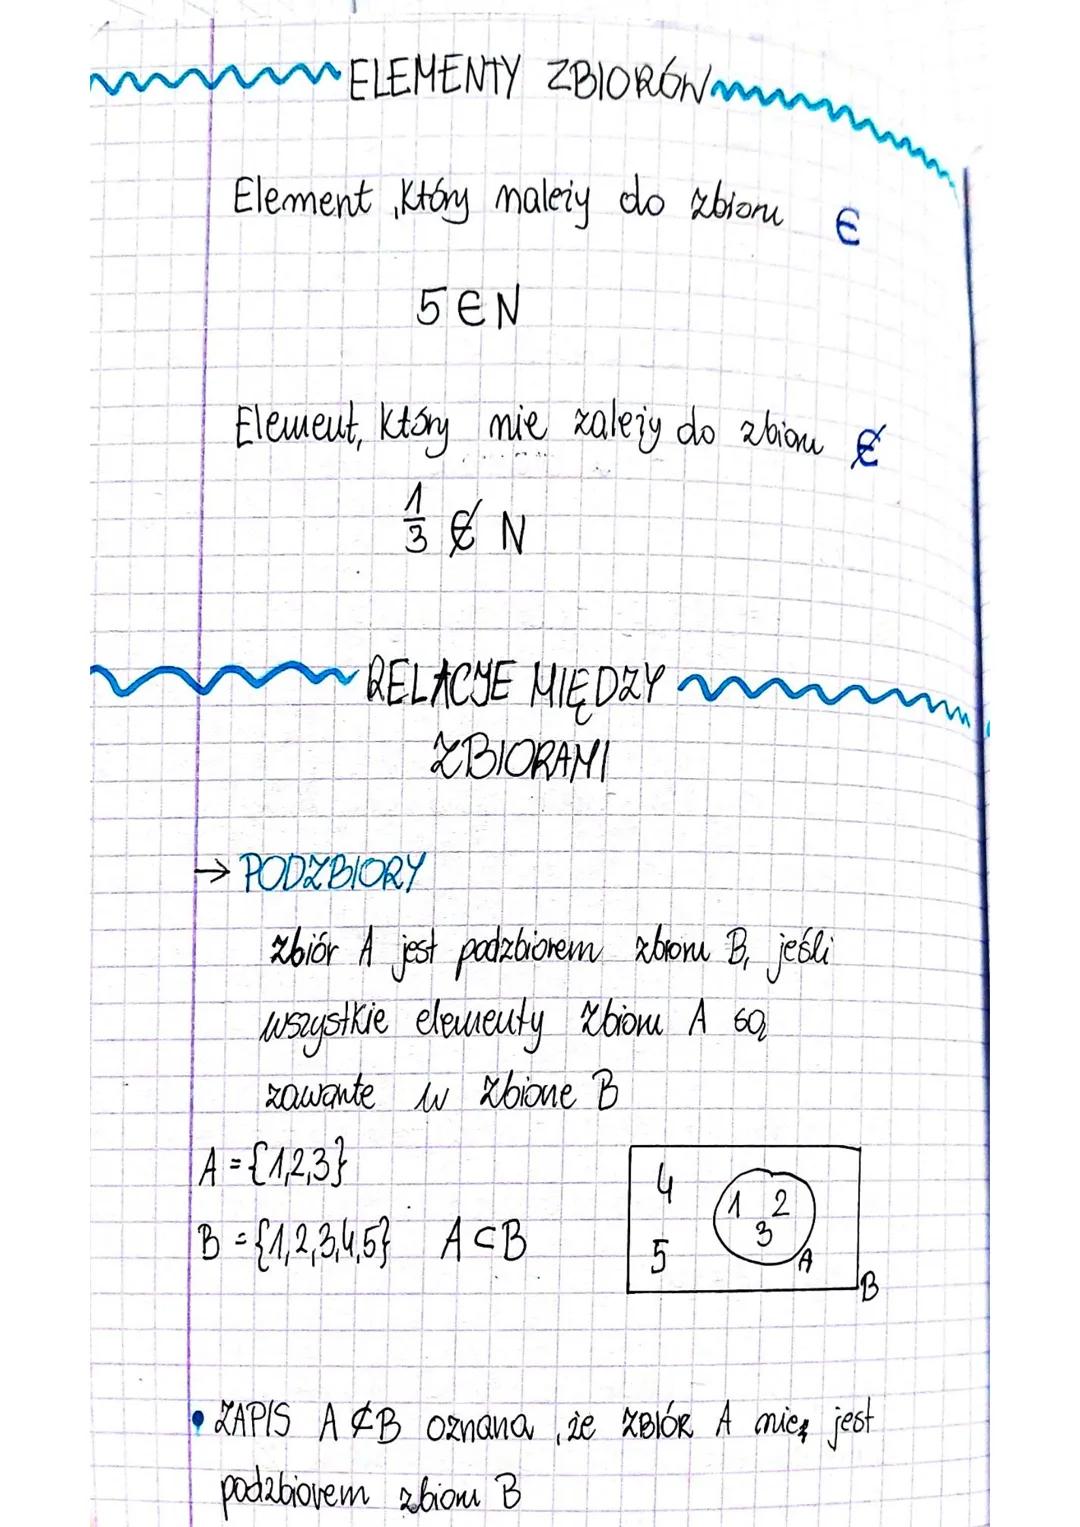 ELEMENTY ZBIORÓW
Element, który należy do zbioru ∈
5 ∈ N
Element, który nie zależy do zbioru ∉
1/3 ∉ N
RELACJE MIĘDZY
ZBIORAMI
→ PODZBIORY
zbiór A jest podzbiorem zbioru B, jeśli
wszystkie elementy zbioru A są
zawarte w zbiorze B
A = {1,2,3}
B = {1,2,3,4,5} A ⊂ B
4 1 2
3
5 A
B
• ZAPIS A ⊄ B oznacza, że ZBIÓR A nie jest
podzbiorem zbioru B